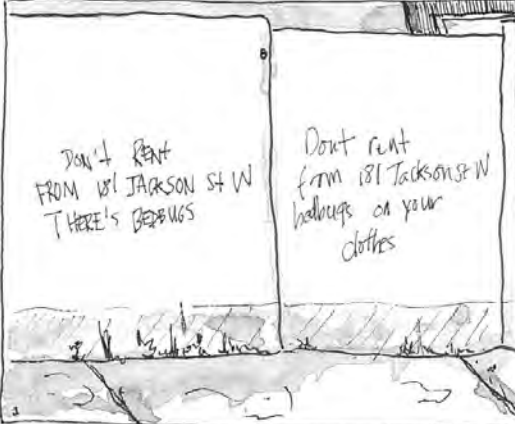 DON't RENT
FROM 181 JACKSON St W
THERE'S BEDBUGS
Dont rent
from 181 Jackson St W
bedbugs on your
clothes